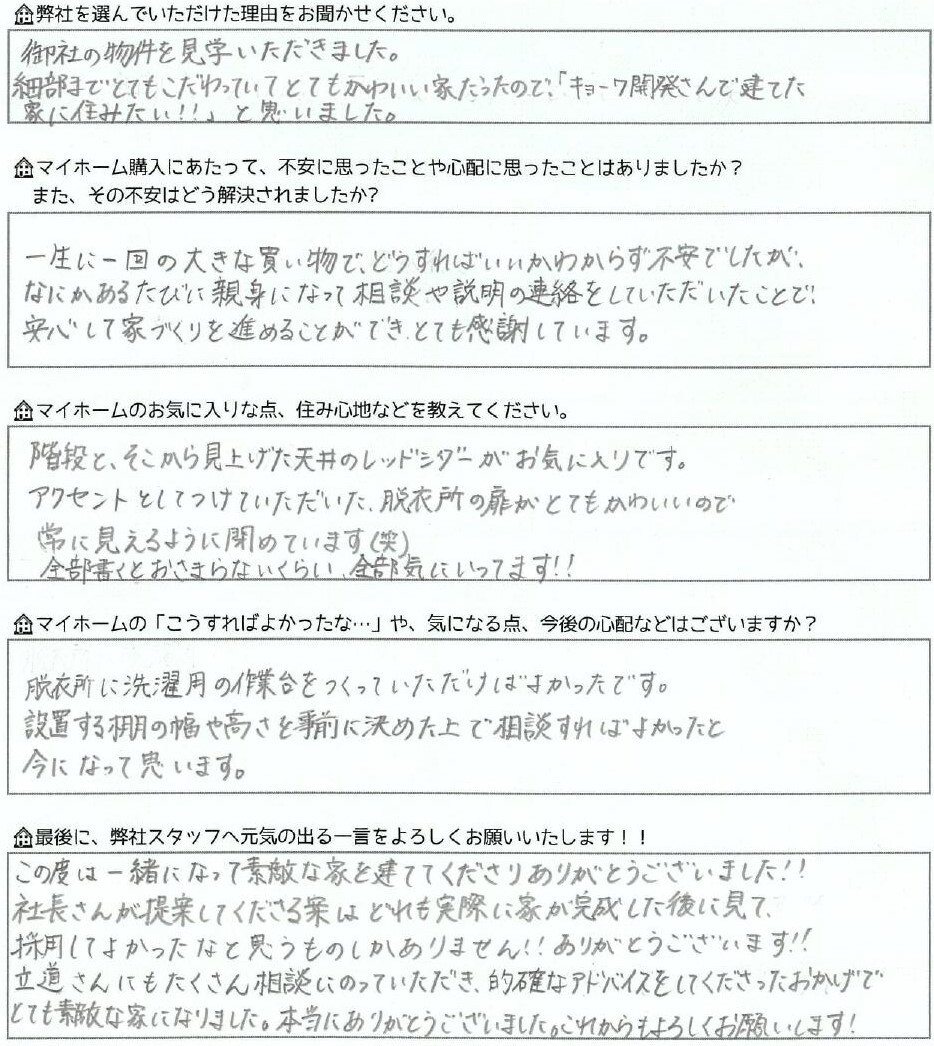 弊社を選んでいただけた理由をお聞かせください。
御社の物件を見学いただきました。
細部までとてもこだわっていてとてもかわいい家だったので、「キョーワ開発さんで建てた
家に住みたい!!」と思いました。
マイホーム購入にあたって、不安に思ったことや心配に思ったことはありましたか?
また、その不安はどう解決されましたか?
一生に一回の大きな買い物で、どうすればいいかわからず不安でしたが、
なにかあるたびに親身になって相談や説明の連絡をしていただいたことで、
安心して家づくりを進めることができ、とても感謝しています。
マイホームのお気に入りな点、住み心地などを教えてください。
階段と、そこから見上げた天井のレッドシダーがお気に入りです。
アクセントとしてつけていただいた、脱衣所の扉がとてもかわいいので
常に見えるように閉めています(笑)
全部書くとおさまらないくらい、全部気にいってます!!
マイホームの「こうすればよかったな…」や、気になる点、今後の心配などはございますか?
脱衣所に洗濯用の作業台をつくっていただけばよかったです。
設置する棚の幅や高さを事前に決めた上で相談すればよかったと
今になって思います。
最後に、弊社スタッフへ元気の出る一言をよろしくお願いいたします!!
この度は一緒になって素敵な家を建ててくださりありがとうございました!!
社長さんが提案してくださる案はどれも実際に家が完成した後に見て、
採用してよかったなと思うものしかありません!!ありがとうございます!!
立道さんにもたくさん相談にのっていただき、的確なアドバイスをしてくださったおかげで
とても素敵な家になりました。本当にありがとうございました。これからもよろしくお願いします!